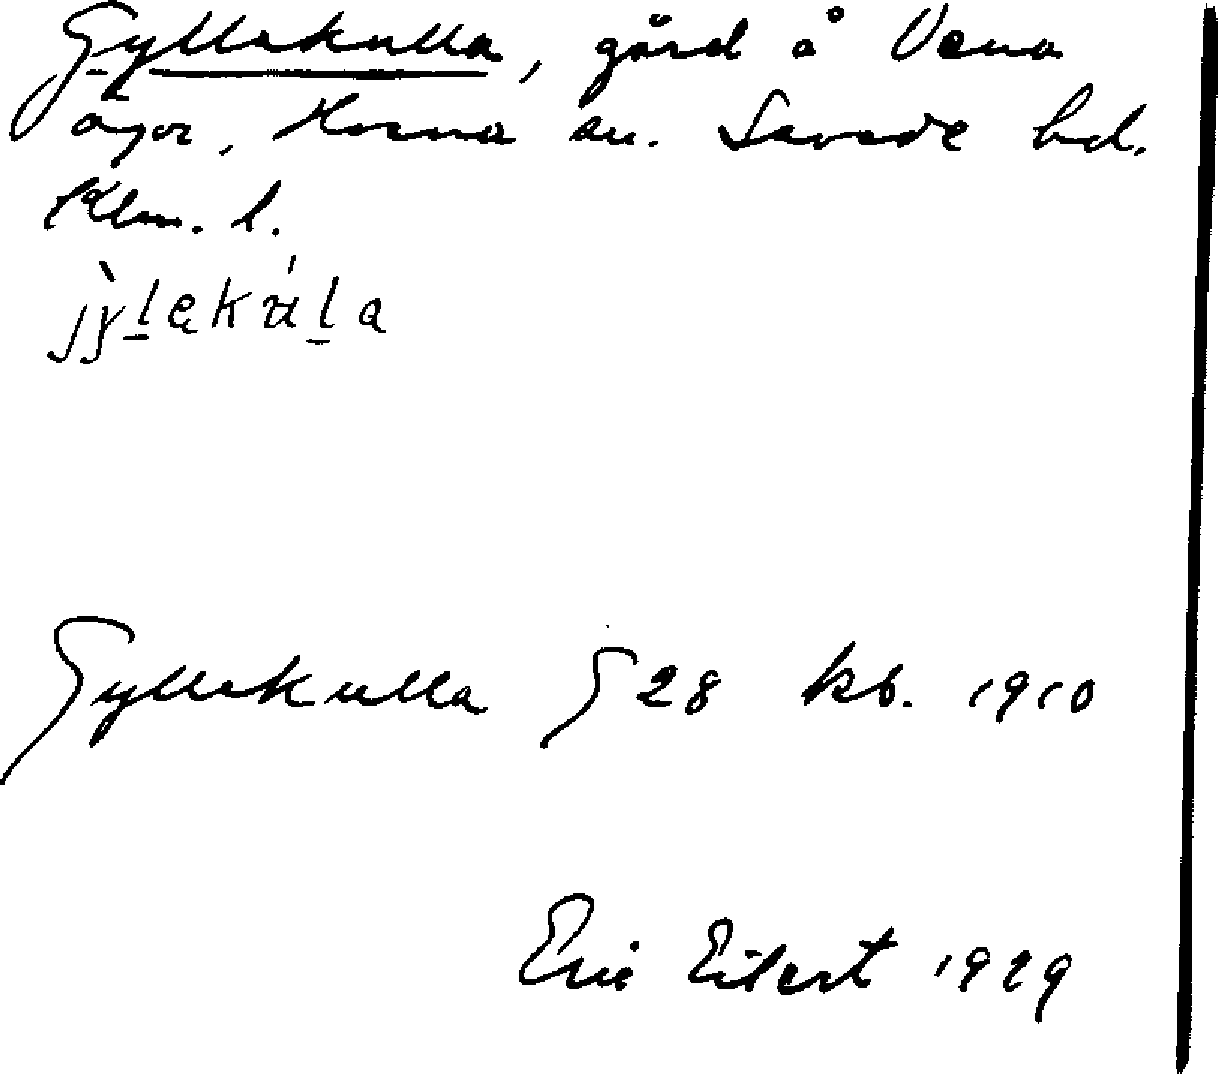 Gyllekulla, gård å Vena
ägor, Horna sn. Sevede hd.
Klm. l.
jỳlekúla
Gyllekulla § 28 kb. 1910
Eric Eilert 1929